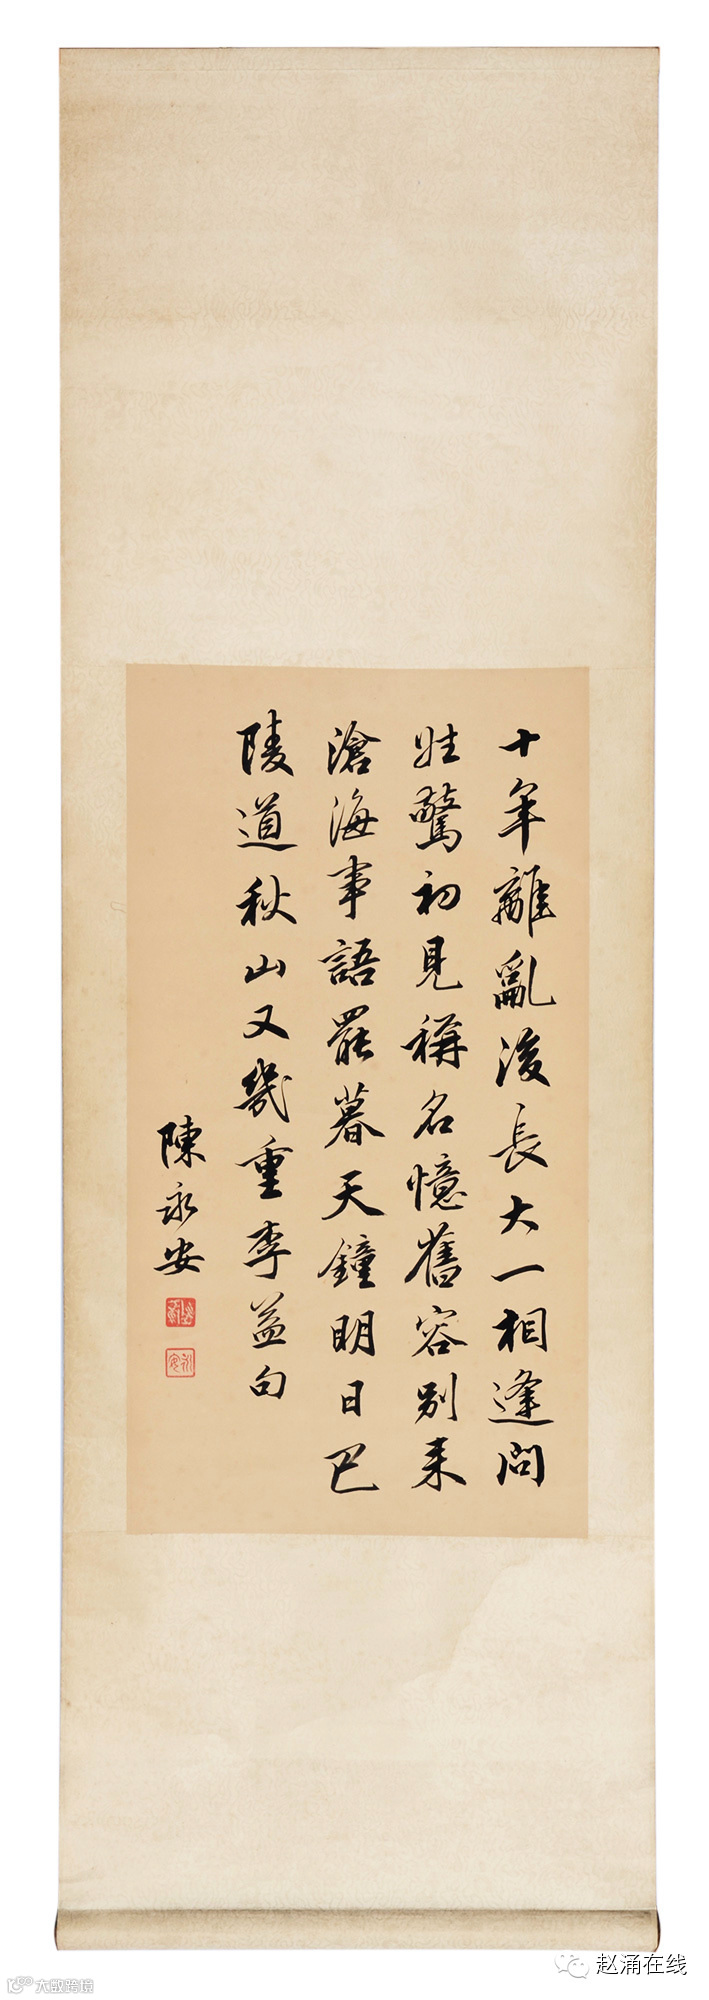 十年離亂後長大一相逢問
姓驚初見稱名憶舊容別来
滄海事語罷暮天鐘明日巴
陵道秋山又幾重李益句
陳永安
永安
赵涌在线
大数跨境